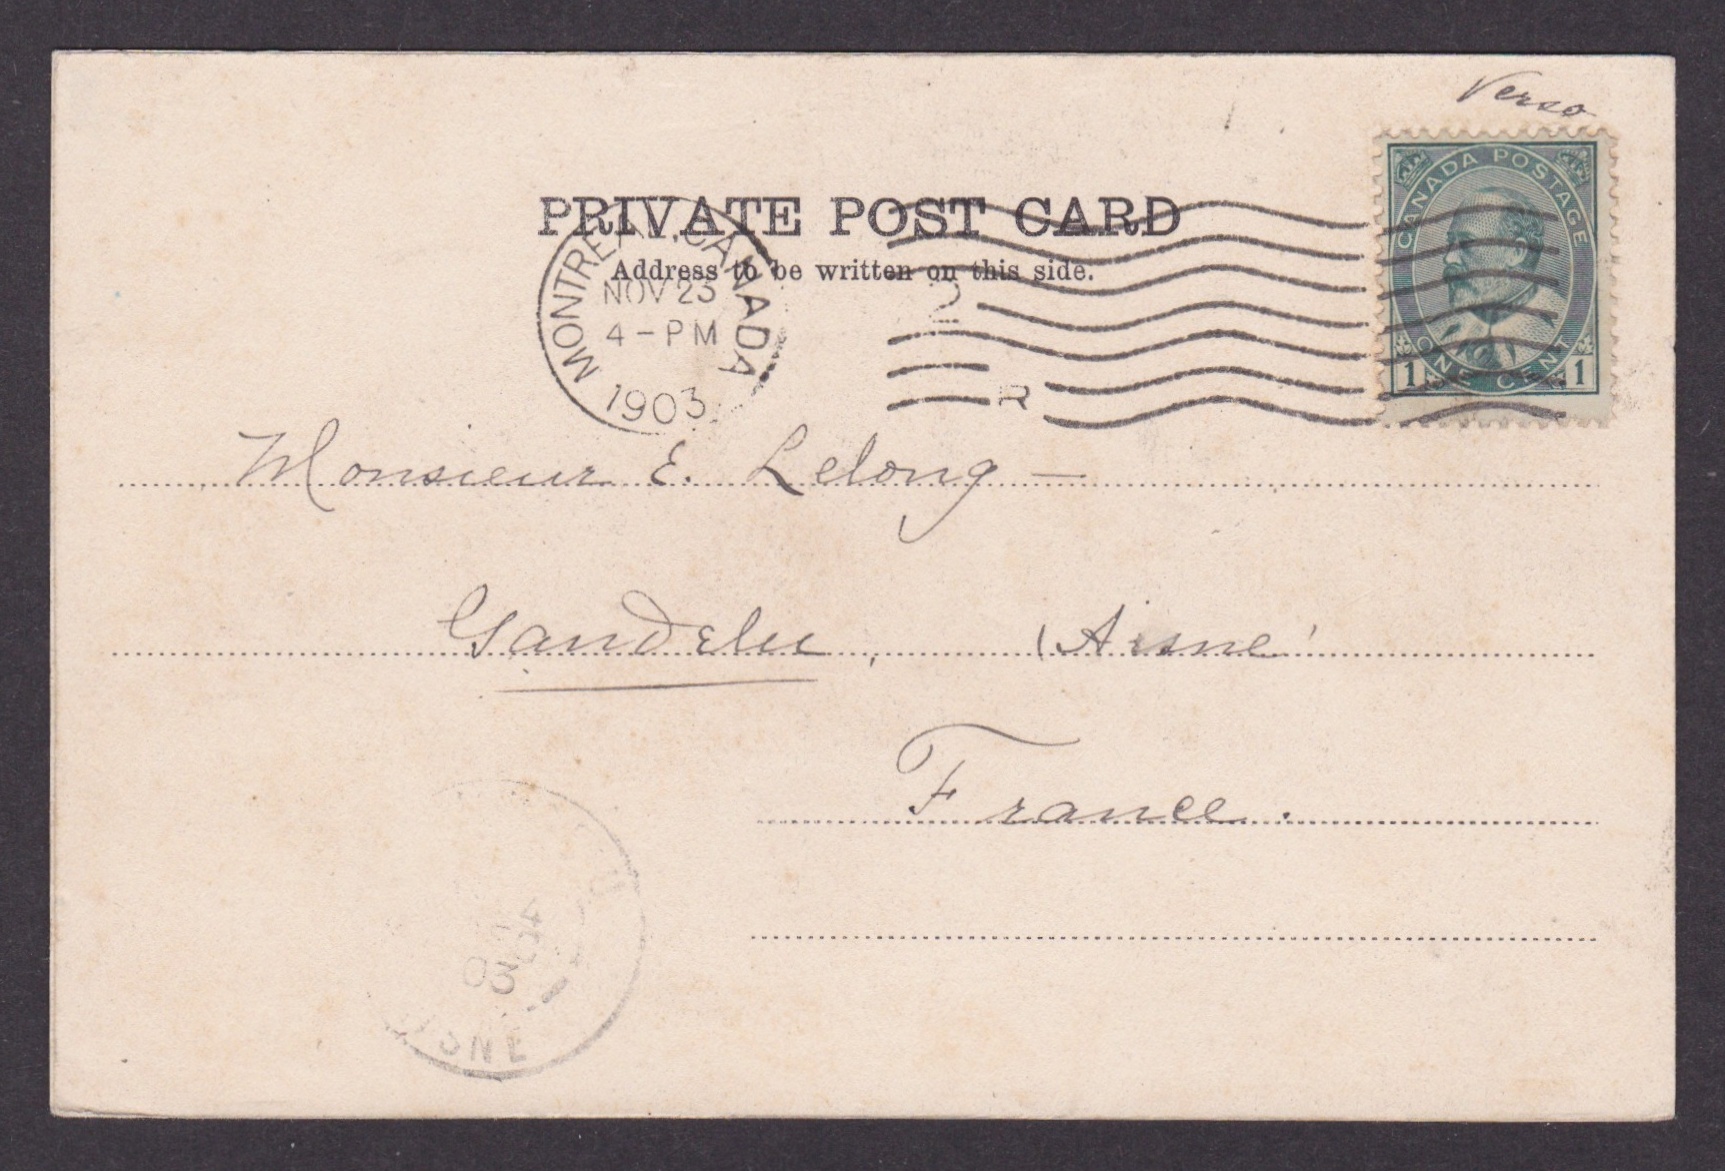 Verso
CANADA POSTAGE
ONE CENT
1 1
PRIVATE POST CARD
Address to be written on this side.
MONTREAL, CANADA
NOV 23
4-PM
1903
2
R
Monsieur E. Lelong —
Gandelu, (Aisne)
France.
4
03
AISNE